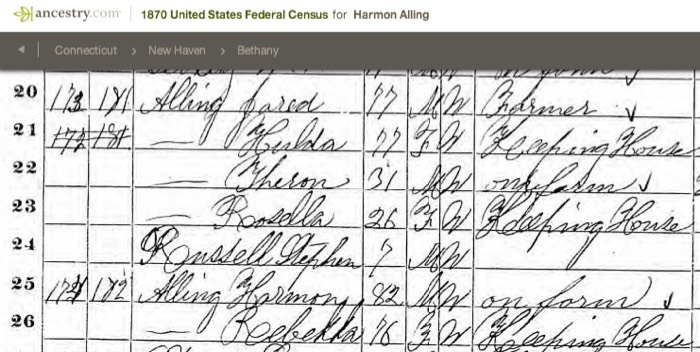 ancestry.com 1870 United States Federal Census for Harmon Alling
Connecticut > New Haven > Bethany
20 173 181 Alling Jared 77 M W Farmer
21 — Hulda 77 F W Keeping House
22 — Theron 31 M W on farm
23 — Rosella 26 F W Keeping House
24 Russell Stephen 7 M W
25 182 Alling Harmon 82 M W on farm
26 — Rebekka 76 F W Keeping House